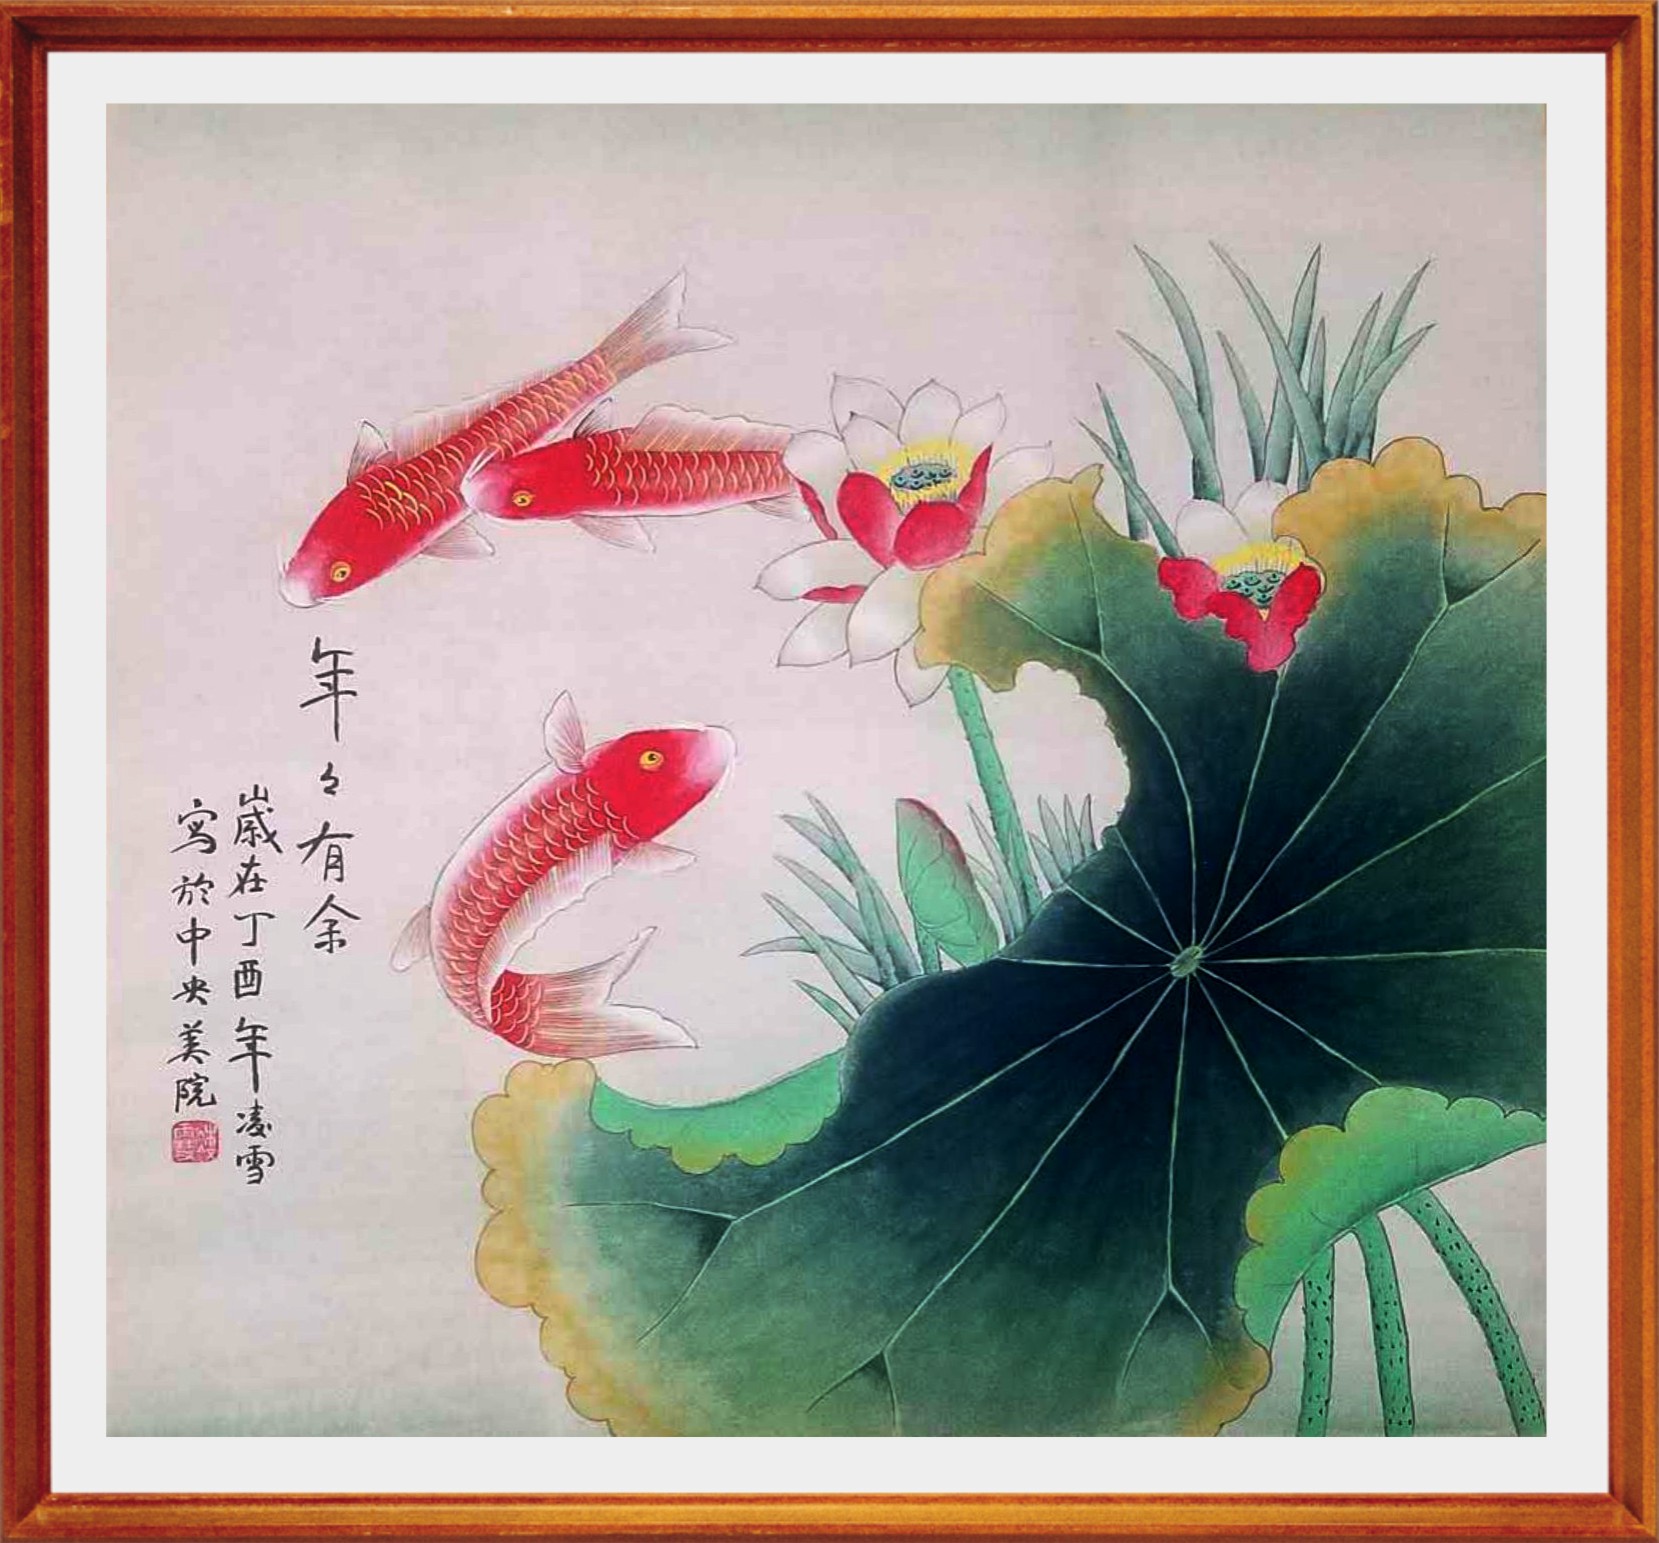 年々有余
歳在丁酉年凌雪
写於中央美院